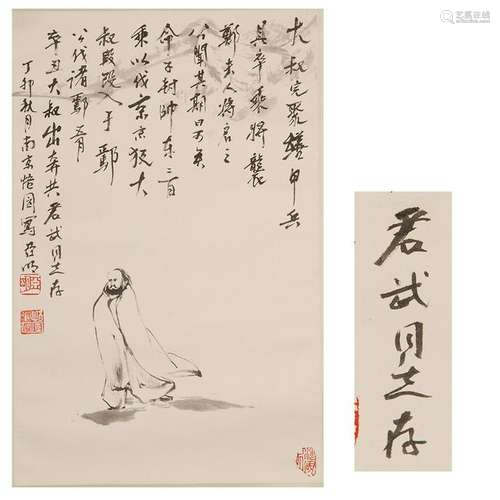 大叔完聚繕甲兵
具卒乘將襲
鄭夫人將啟之
公聞其期曰可矣
命子封帥車二百
乘以伐京京叛大
叔段段入于鄢
公伐諸鄢五月
辛丑大叔出奔共 君武同志存
丁卯秋月南京悟園寫亞明
君武同志存